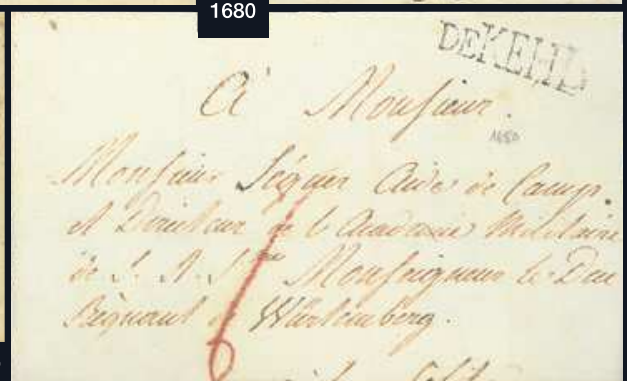 1680
DE KEHL
A Monsieur
1680
Monsieur Séguer Aide de Camp.
et Directeur de l'Academie Militaire
de S. A. S.me Monseigneur le Duc
Régnant de Würtemberg.